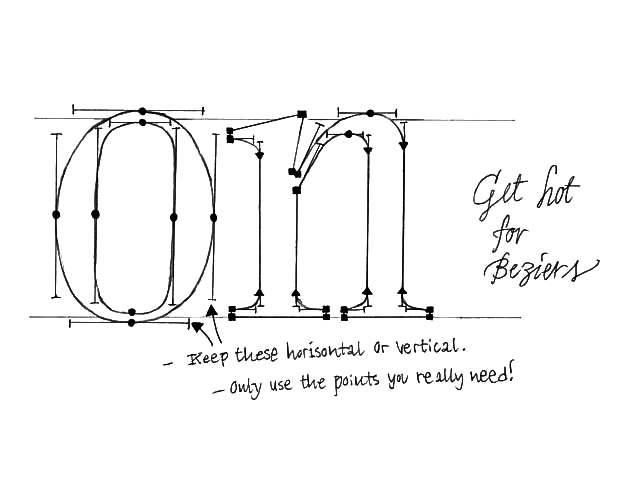 on
Get hot
for
Beziers
- Keep these horisontal or vertical.
- Only use the points you really need!